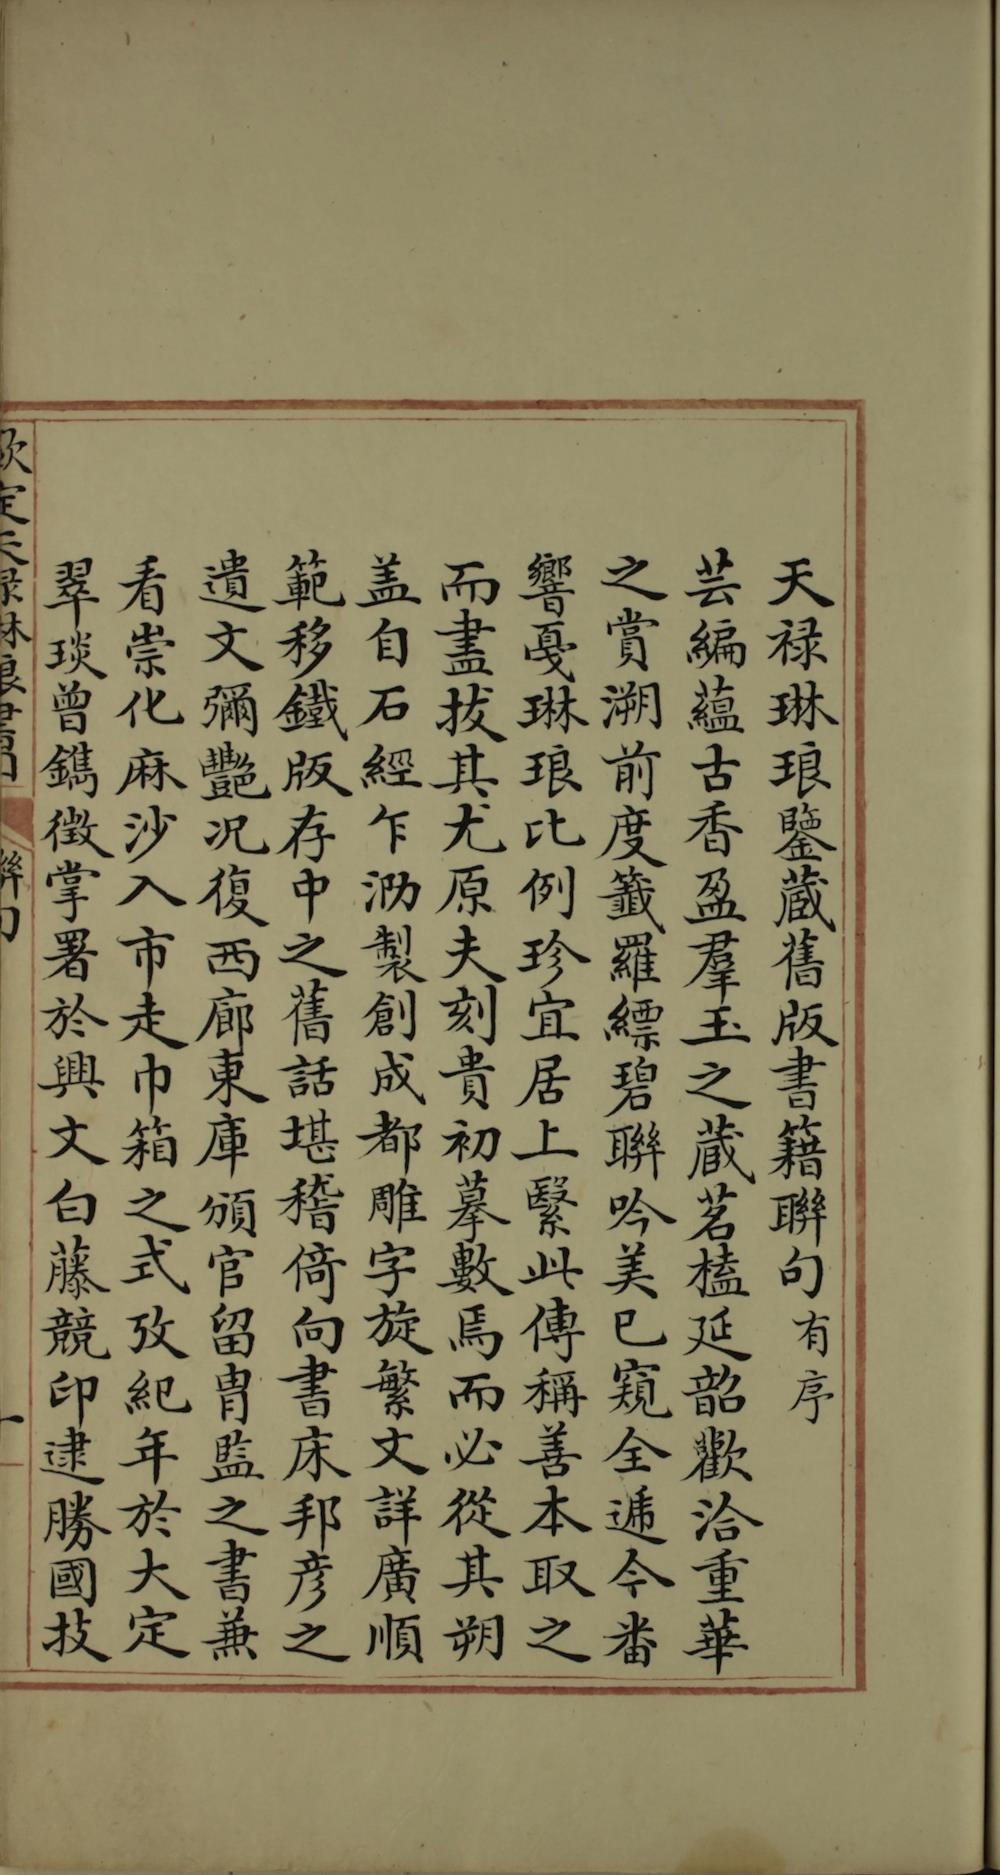 天禄琳琅鑒蔵舊版書籍聯句有序
芸編藴古香盈羣玉之蔵茗榼延韶歡洽重華
之賞溯前度籖羅縹碧聯吟美已窺全遞今番
響戛琳琅比例珍宜居上繄此傳稱善本取之
而盡拔其尤原夫刻貴初摹數焉而必從其朔
盖自石經乍泐製創成都雕字旋繁文詳廣順
範移鐵版存中之舊話堪稽倚向書床邦彦之
遺文彌艷況復西廊東庫頒官留胄監之書兼
看崇化麻沙入市走巾箱之式攷紀年於大定
翠琰曾鐫徴掌署於興文白藤競印逮勝國技
欽定天禄琳琅書目 聯句 一